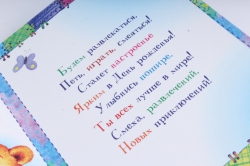 Будем развлекаться,
Петь, играть, смеяться!
Станет настроенье
Ярким в День рожденье!
Улыбнись пошире,
Ты всех лучше в мире!
Смеха, развлечений,
Новых приключений!